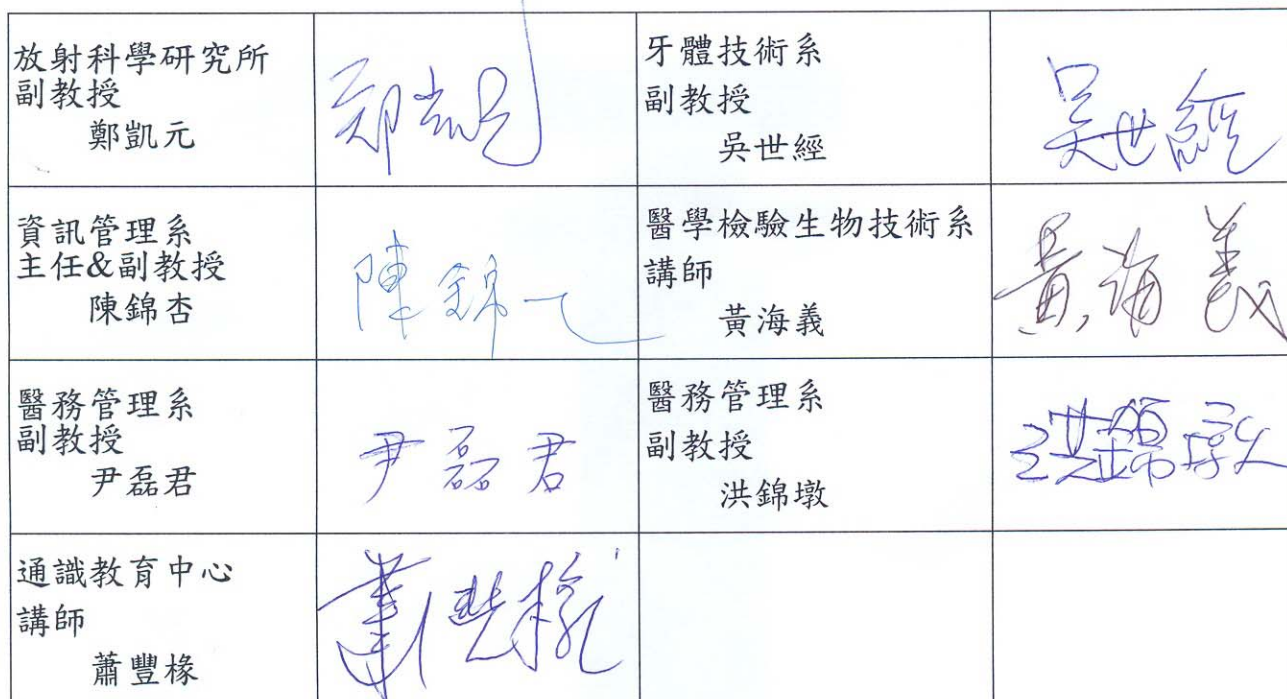 放射科學研究所
副教授
鄭凱元
鄭凱元
牙體技術系
副教授
吳世經
吳世經
資訊管理系
主任&副教授
陳錦杏
陳錦
醫學檢驗生物技術系
講師
黃海義
黃海義
醫務管理系
副教授
尹磊君
尹磊君
醫務管理系
副教授
洪錦墩
洪錦墩
通識教育中心
講師
蕭豐椽
蕭豐椽